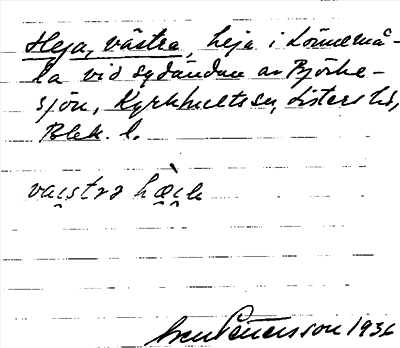 Heja, västra, heja i Lönnemå-
la vid sydändan av Björke-
sjön, Kyrkhults sn, Listers hd,
Blek. l.
vai̯stra hæi̯e
Sven Benson 1936